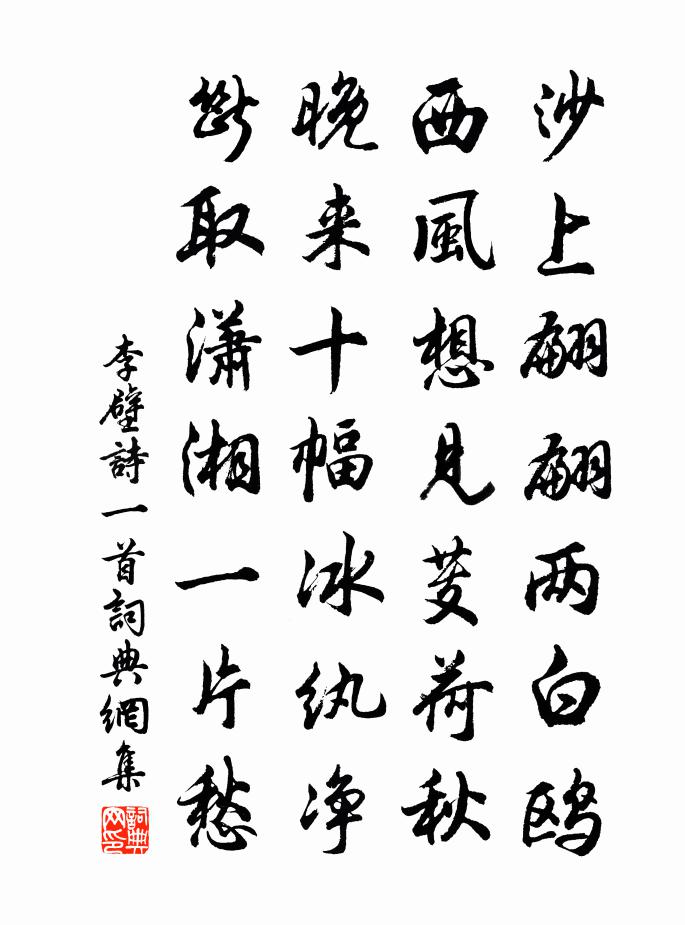 沙上翩翩两白鸥
西風想見芰荷秋
晚来十幅冰纨净
断取瀟湘一片愁
李壁詩一首詞典網集
詞典网印